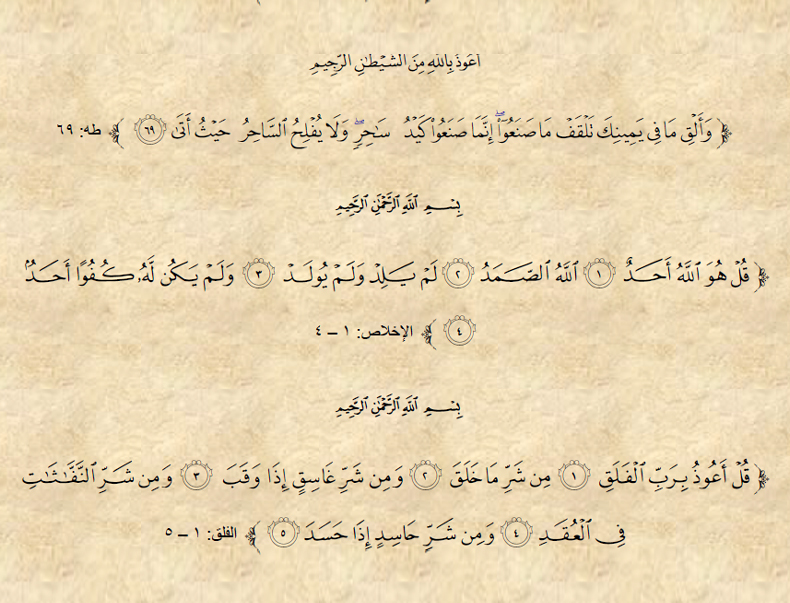 أعوذ بالله من الشيطان الرجيم
﴿ وَأَلْقِ مَا فِي يَمِينِكَ تَلْقَفْ مَا صَنَعُوٓا۟ ۖ إِنَّمَا صَنَعُوا۟ كَيْدُ سَٰحِرٍ ۖ وَلَا يُفْلِحُ ٱلسَّاحِرُ حَيْثُ أَتَىٰ ٦٩ ﴾ طه: ٦٩
بِسْمِ ٱللَّهِ ٱلرَّحْمَٰنِ ٱلرَّحِيمِ
﴿ قُلْ هُوَ ٱللَّهُ أَحَدٌ ١ ٱللَّهُ ٱلصَّمَدُ ٢ لَمْ يَلِدْ وَلَمْ يُولَدْ ٣ وَلَمْ يَكُن لَّهُۥ كُفُوًا أَحَدٌۢ
٤ ﴾ الإخلاص: ١ – ٤
بِسْمِ ٱللَّهِ ٱلرَّحْمَٰنِ ٱلرَّحِيمِ
﴿ قُلْ أَعُوذُ بِرَبِّ ٱلْفَلَقِ ١ مِن شَرِّ مَا خَلَقَ ٢ وَمِن شَرِّ غَاسِقٍ إِذَا وَقَبَ ٣ وَمِن شَرِّ ٱلنَّفَّٰثَٰتِ
فِى ٱلْعُقَدِ ٤ وَمِن شَرِّ حَاسِدٍ إِذَا حَسَدَ ٥ ﴾ الفلق: ١ – ٥